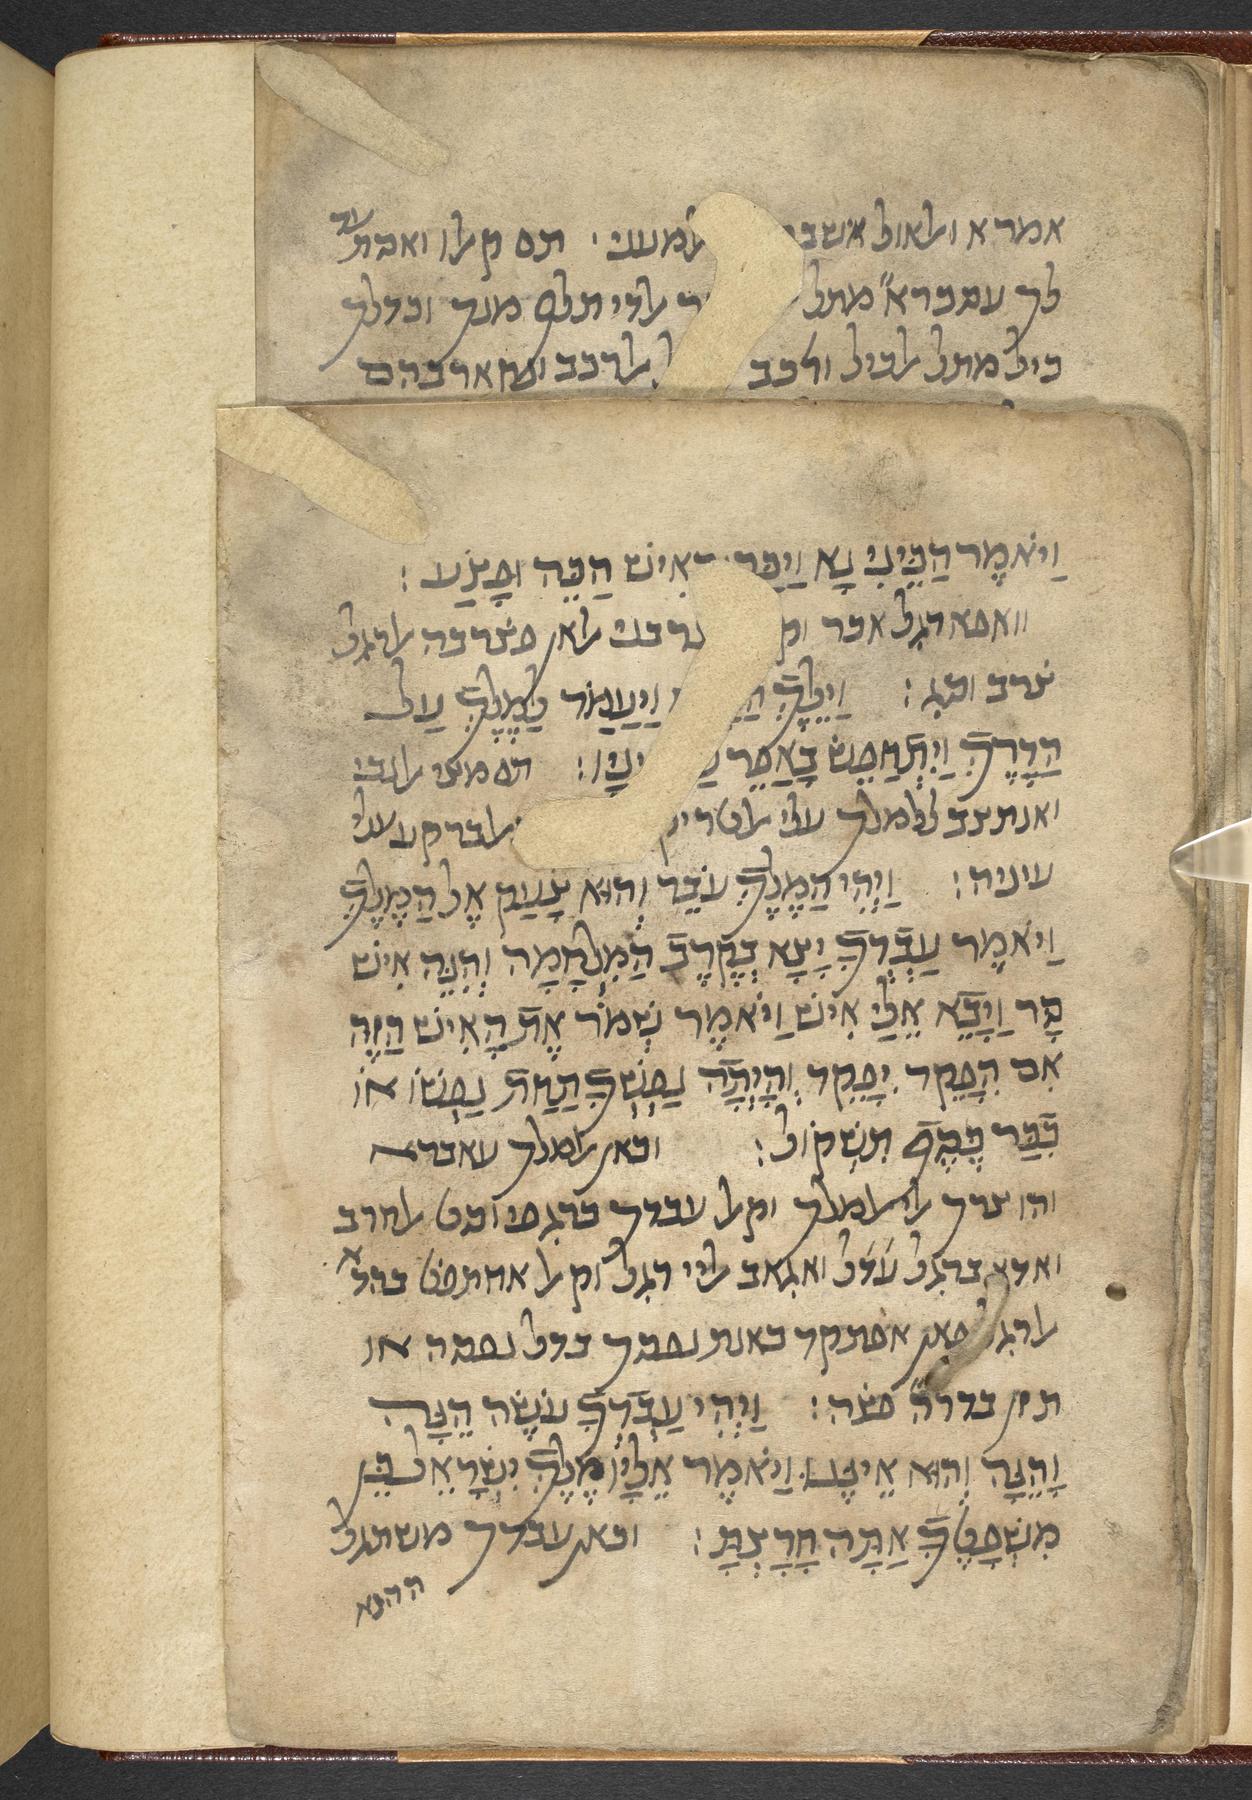 אמרא ולאול אשב למעני תם קאלו ואבת עד
לך עסכרא מתל אלדי תלף מנך וכדלך
כיל מתל אלכיל ורכב אלרכב ונחארבהם
וַיֹּאמֶר הַכֵּינִי נָא וַיַּכֵּ הָאִישׁ הַכֵּה וּפָצֹעַ׃
וואפא רגל אכר וק בני אלאן פצרבה אלרגל
צרב ושג׃ וַיֵּלֶךְ הַ וַיַּעֲמֹד לַמֶּלֶךְ עַל
הַדֶּרֶךְ וַיִּתְחַפֵּשׂ בָּאֲפֵר עַ ינָיו׃ תם מצי אלנבי
ואנתצב ללמלך עלי אלטריק אלברקע עלי
עיניה׃ וַיְהִי הַמֶּלֶךְ עֹבֵר וְהוּא צָעַק אֶל הַמֶּלֶךְ
וַיֹּאמֶר עַבְדְּךָ יָצָא בְקֶרֶב הַמִּלְחָמָה וְהִנֵּה אִישׁ
סָר וַיָּבֵא אֵלַי אִישׁ וַיֹּאמֶר שְׁמֹר אֶת הָאִישׁ הַזֶּה
אִם הִפָּקֵד יִפָּקֵד וְהָיְתָה נַפְשְׁךָ תַּחַת נַפְשׁוֹ אוֹ
כִכַּר כֶּסֶף תִּשְׁקוֹל׃ וכאן אלמלך עאברא
והו צרך אלי אלמלך וקאל עבדך כרג פי וסט אלחרב
ואדא ברגל עדל ואגאב אליי רגל וקאל אחתפט בהדא
אלרגל פאן אפתקד כאנת נפסך בדל נפסה או
תזן בדרה פצה׃ וַיְהִי עַבְדְּךָ עֹשֶׂה הֵנָּה
וָהֵנָּה וְהוּא אֵינֶנּוּ וַיֹּאמֶר אֵלָיו מֶלֶךְ יִשְׂרָאֵל כֵּן
מִשְׁפָּטֶךָ אַתָּה חָרָצְתָּ׃ וכאן עבדך משתגל
ההנא